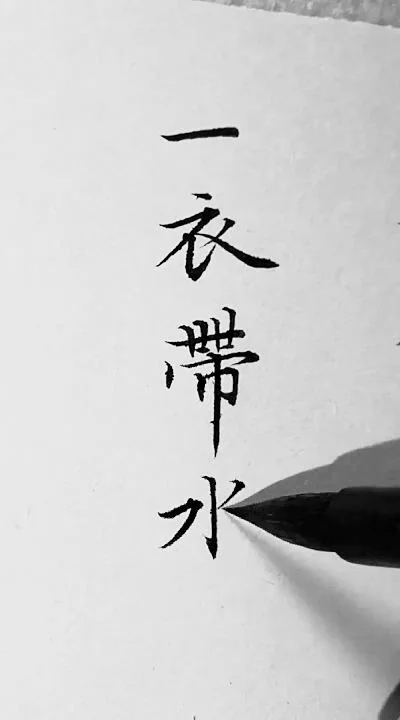 一衣帶水